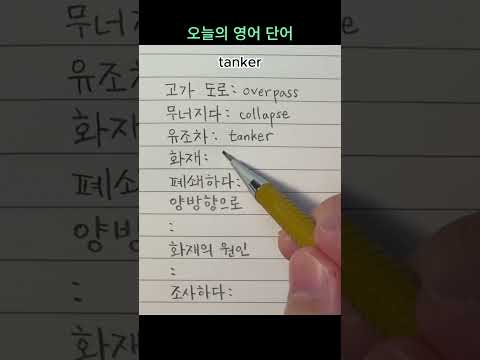 오늘의 영어 단어
tanker
고가 도로: overpass
무너지다: collapse
유조차: tanker
화재:
폐쇄하다:
양방향으로
:
화재의 원인
:
조사하다: